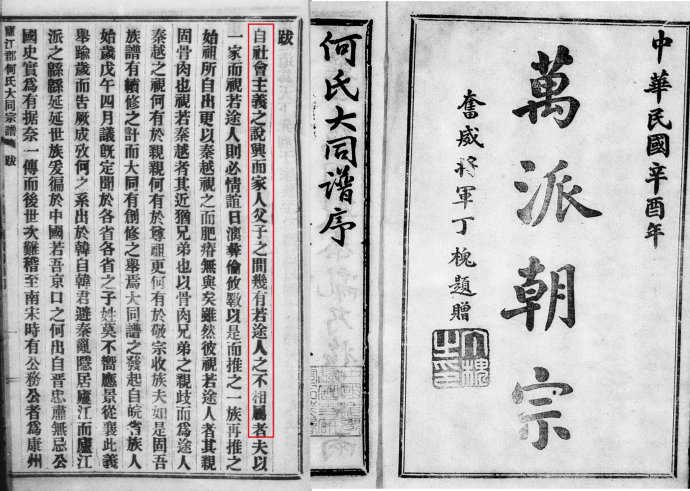 中華民國辛酉年
萬派朝宗
奮威將軍丁槐題贈
何氏大同譜序
跋
自社會主義之說興而家人父子之間幾有若途人之不相屬者夫以
一家而視若途人則必情誼日漓彝倫攸斁以是而推之一族再推之
始祖所自出更以秦越視之而肥瘠無與矣雖然彼視若途人者其親
固骨肉也視若秦越者其近猶兄弟也以骨肉兄弟之親歧而爲途人
秦越之視何有於親親何有於尊祖更何有於敬宗收族夫如是固吾
族譜有續修之計而大同有創修之舉焉大同譜之發起自皖省族人
始歲戊午四月議旣定聞於各省各省之子姓莫不嚮應景從襄此義
舉踰歲而告厥成攷何之系出於韓自韓君避秦亂隱居廬江而廬江
派之緜緜延延世族爰徧於中國若吾京口之何出自晉忠肅無忌公
國史實爲有据奈一傳而後世次難稽至南宋時有公務公者爲康州
廬江郡何氏大同宗譜 跋